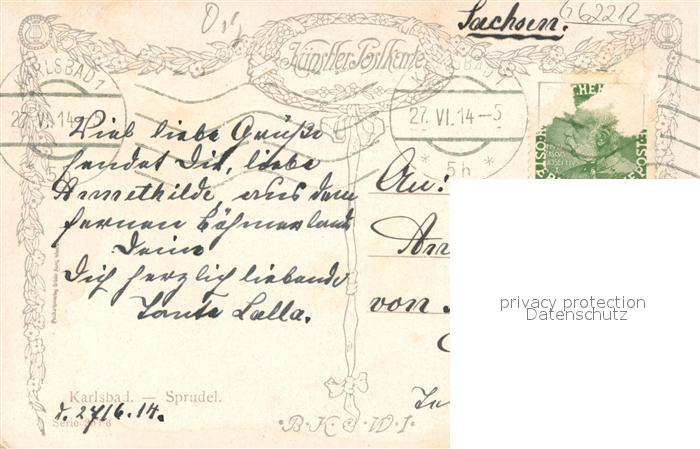 Sachsen.
66221
Künstler-Postkarte
KARLSBAD 1
27. VI. 14
KARLSBAD
27. VI. 14-5
* 5h *
Viel liebe Grüße
sendet Dir, liebe
Annethilde, aus dem
fernen Böhmerlande
Deine
Dich herzlich liebende
Tante Lalla.
An:
von
privacy protection
Datenschutz
Karlsbad. — Sprudel.
d. 27/6.14.
B.K.W.I.